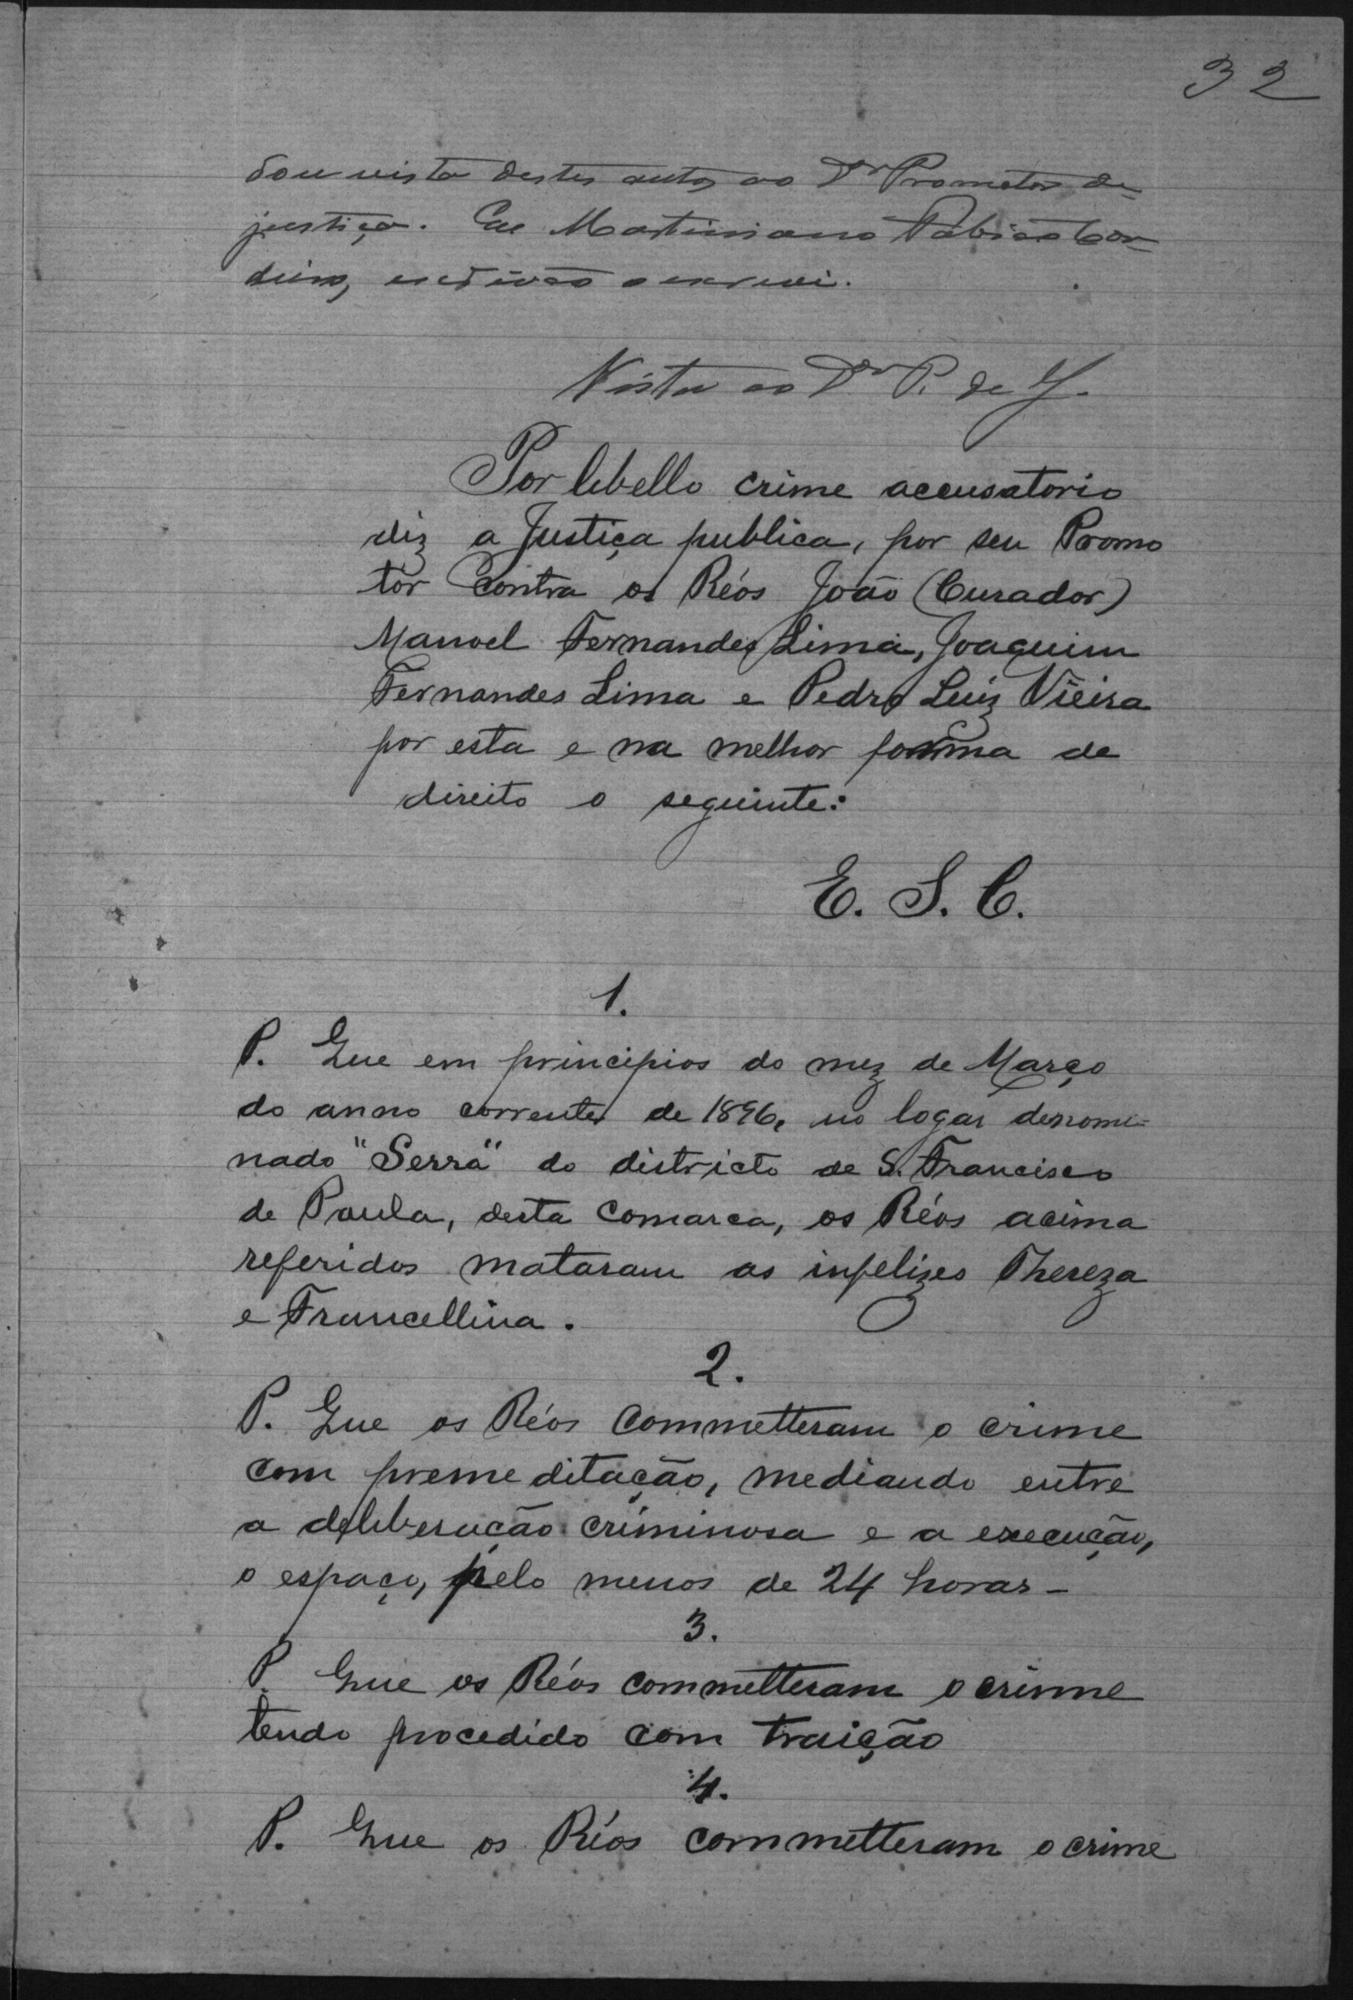 32
dou vista destes autos ao Dr Promotor de
justiça. Eu Martiniano Fabião Cor-
deiro, escrivão o escrevi.
Vista ao Dr P. de J.
Por libello crime accusatorio
diz a Justiça publica, por seu Promo
tor Contra os Réos João (Curador)
Manoel Fernandes Lima, Joaquim
Fernandes Lima e Pedro Luiz Vieira
por esta e na melhor forma de
direito o seguinte:
E. S. C.
1.
P. Que em principios do mez de Março
do anno corrente de 1896, no logar denomi-
nado "Serra" do districto de S. Francisco
de Paula, desta Comarca, os Réos acima
referidos mataram as infelizes Thereza
e Francellina.
2.
P. Que os Réos Commetteram o crime
com premeditação, mediando entre
a deliberação criminosa e a execução,
o espaço, pelo menos de 24 horas -
3.
P. Que os Réos commetteram o crime
tendo procedido com traição
4.
P. Que os Réos commetteram o crime